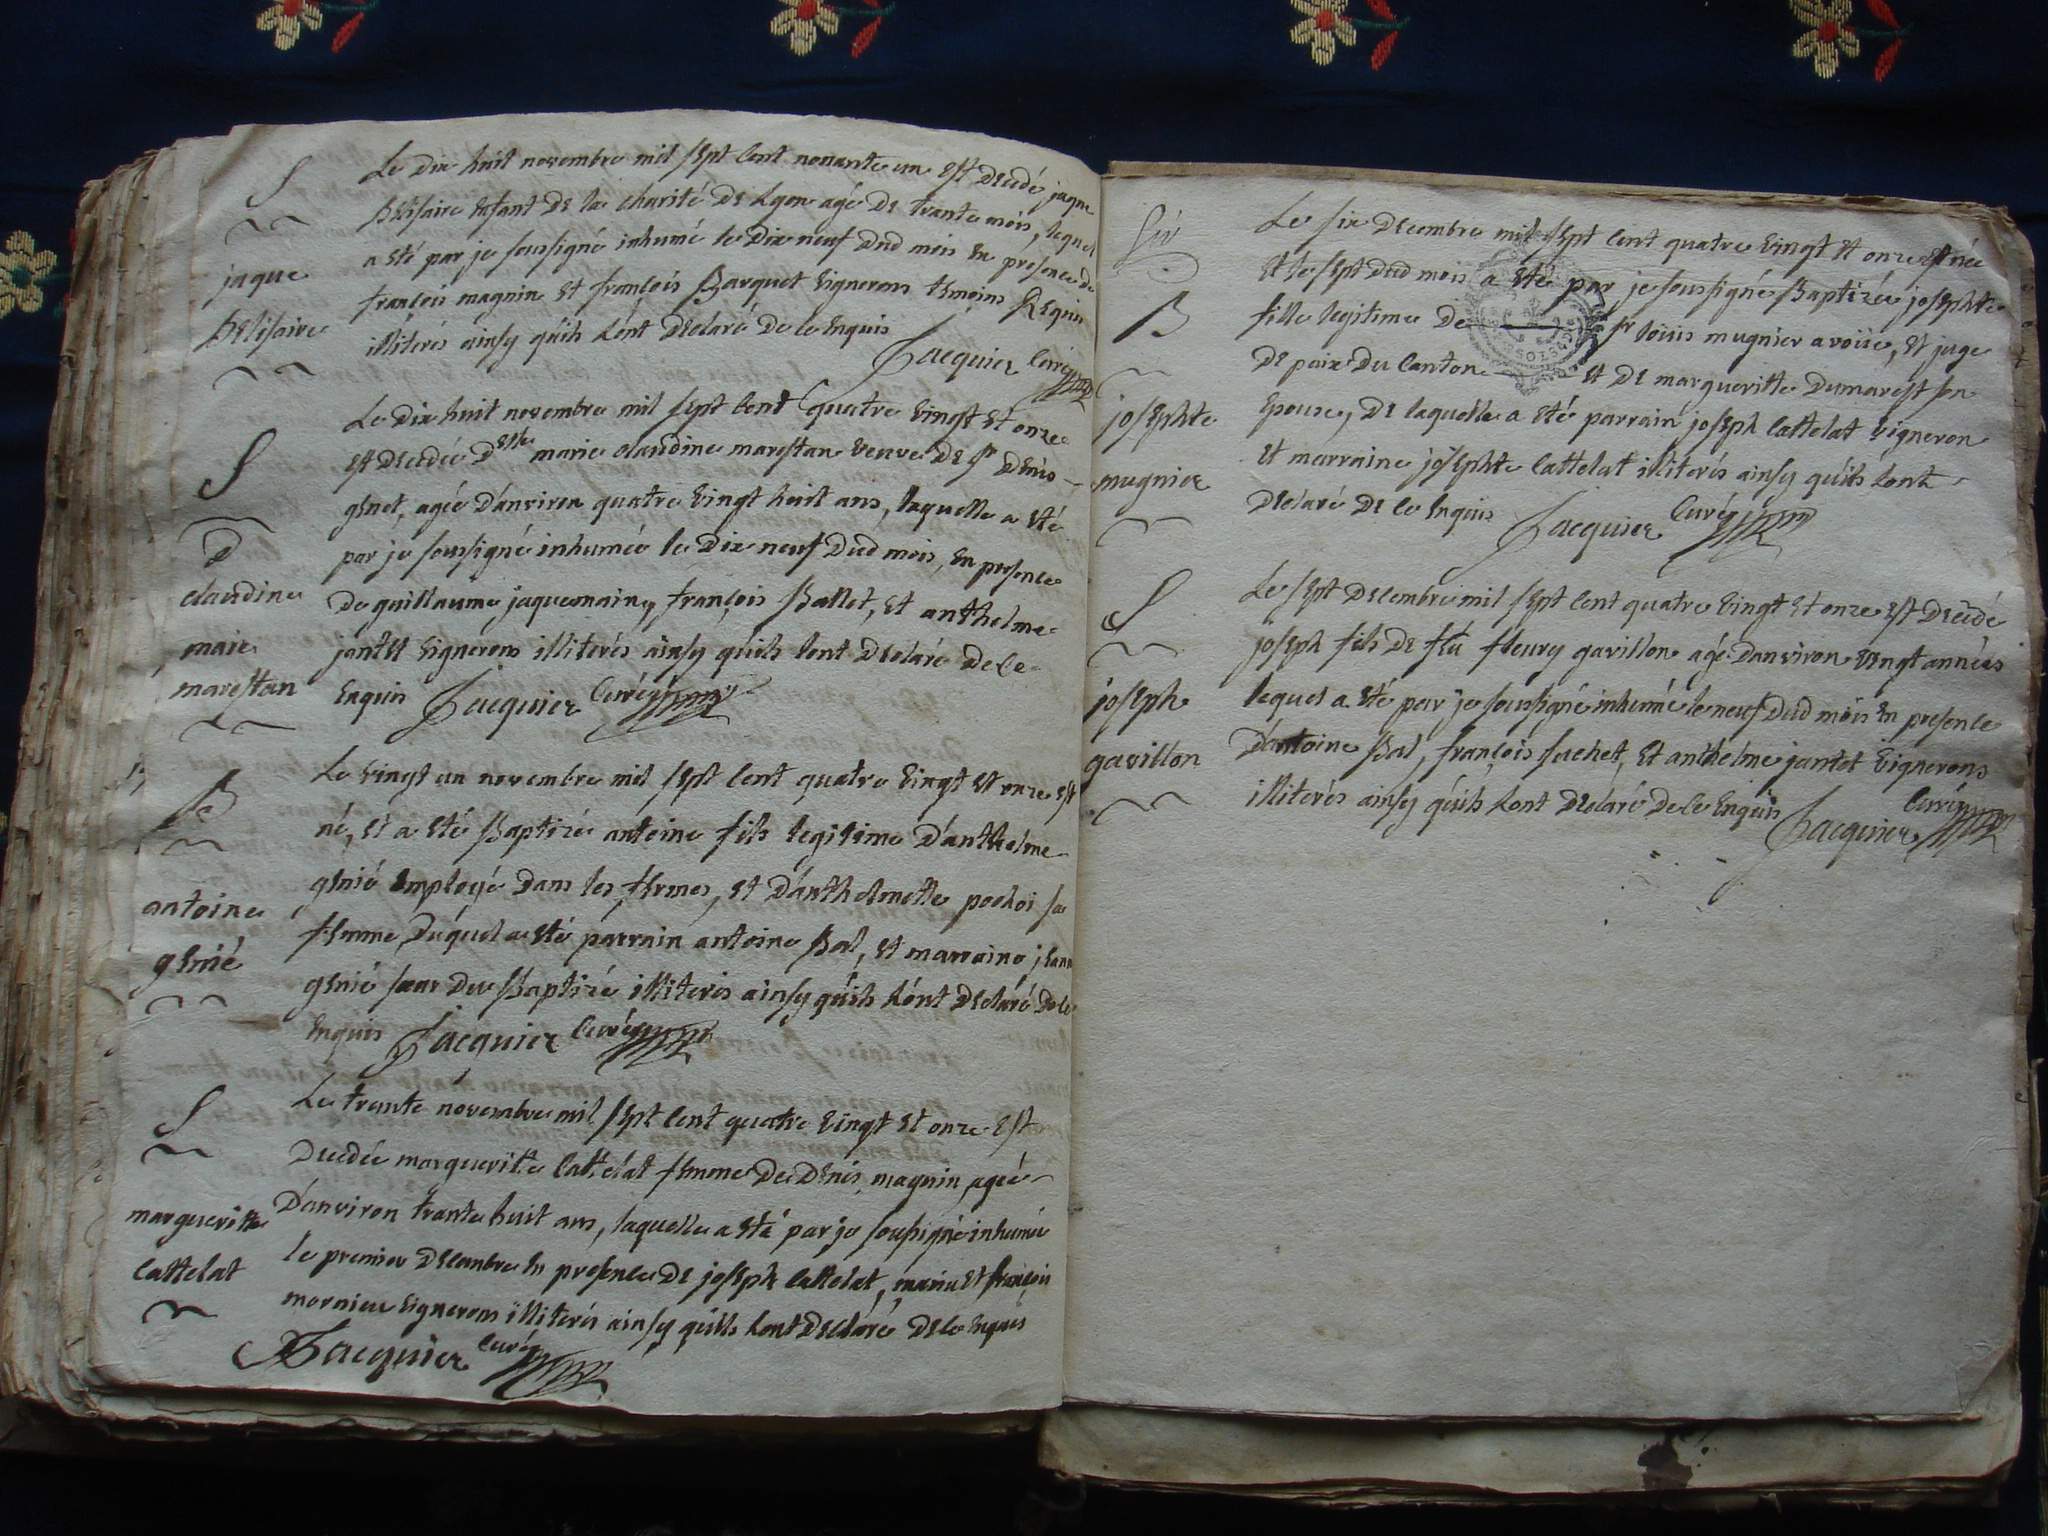 S
jaque
Belisaire
Le dix huit novembre mil sept cent nonante un est decedé jaque
Belisaire enfant de la charité de Lyon agé de trante mois, lequel
a eté par je soussigné inhumé le dix neuf dud mois en presence de
françois magnin et françois Barquet vignerons temoins Requis
illiterés ainsy quils lont declaré de ce enquis
Jacquier Curé
S
D
claudine
marie
marestan
Le dix huit novembre mil sept cent quatre vingt et onze
est decedée Delle marie claudine marestan veuve de sr denis
genet, agée danviron quatre vingt huit ans, laquelle a eté
par je soussigné inhumée le dix neuf dud mois, en presence
de guillaume jaquemain, françois Ballet, et anthelme
jantet vignerons illiterés ainsy quils lont declaré de ce
enquis Jacquier Curé
B
antoine
genié
Le vingt un novembre mil sept cent quatre vingt et onze est
né, et a eté Baptizé antoine fils legitime danthelme
genié employé dans les fermes, et danthelmette pochoi sa
femme, duquel a eté parrain antoine Bal, et marraine jeanne
genié sœur du Baptizé illiterés ainsy quils lont declaré de ce
enquis Jacquier Curé
S
margueritte
Cattelat
Le trente novembre mil sept cent quatre vingt et onze est
decedée margueritte Cattelat femme de denis magnin, agée
danviron trante huit ans, laquelle a eté par je soussigné inhumée
le premier decembre en presence de joseph Cattelat, et françois
mornieu vignerons illiterés ainsy quils lont declaré de ce enquis
Jacquier Curé
B
josephte
mugnier
Le six decembre mil sept cent quatre vingt et onze est née
et le sept dud mois a eté par je soussigné Baptizée josephte
fille legitime de sr loüis mugnier avoüé, et juge
de paix du Canton et de margueritte dumarest son
epouse, de laquelle a eté parrain joseph Cattelat vigneron
et marraine josephte Cattelat illiterés ainsy quils lont
declaré de ce enquis Jacquier Curé
S
joseph
gavillon
Le sept decembre mil sept cent quatre vingt et onze est decedé
joseph fils de feu fleury gavillon agé danviron vingt années
lequel a eté par je soussigné inhumé le neuf dud mois en presence
dantoine Bal, françois suchet, et anthelme jantet vignerons
illiterés ainsy quils lont declaré de ce enquis Jacquier Curé